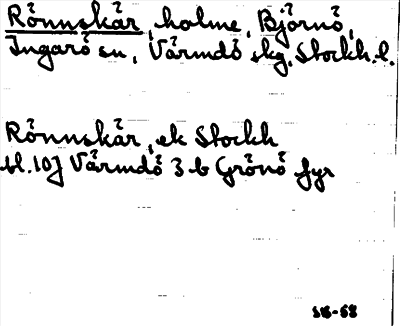 Rönnskär, holme, Björnö,
Ingarö sn, Värmdö skg, Stockh. l.
Rönnskär, ek Stockh
bl. 10J Värmdö 3 b Grönö fyr
SÖ-68